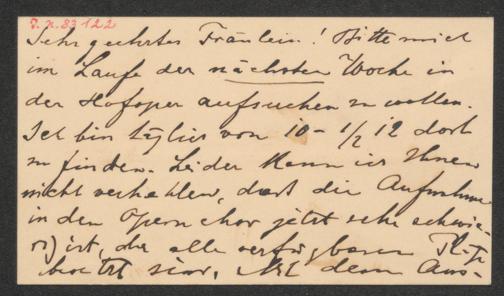 J. N. 83122
Sehr geehrtes Fräulein! Bitte mich
im Laufe der nächsten Woche in
der Hofoper aufsuchen zu wollen.
Ich bin täglich von 10 - 1/2 12 dort
zu finden. Leider kann ich Ihnen
nicht verhehlen, dass die Aufnahme
in den Opernchor jetzt sehr schwie-
rig ist, da alle verfügbaren Plätze
besetzt sind. Mit dem Aus-